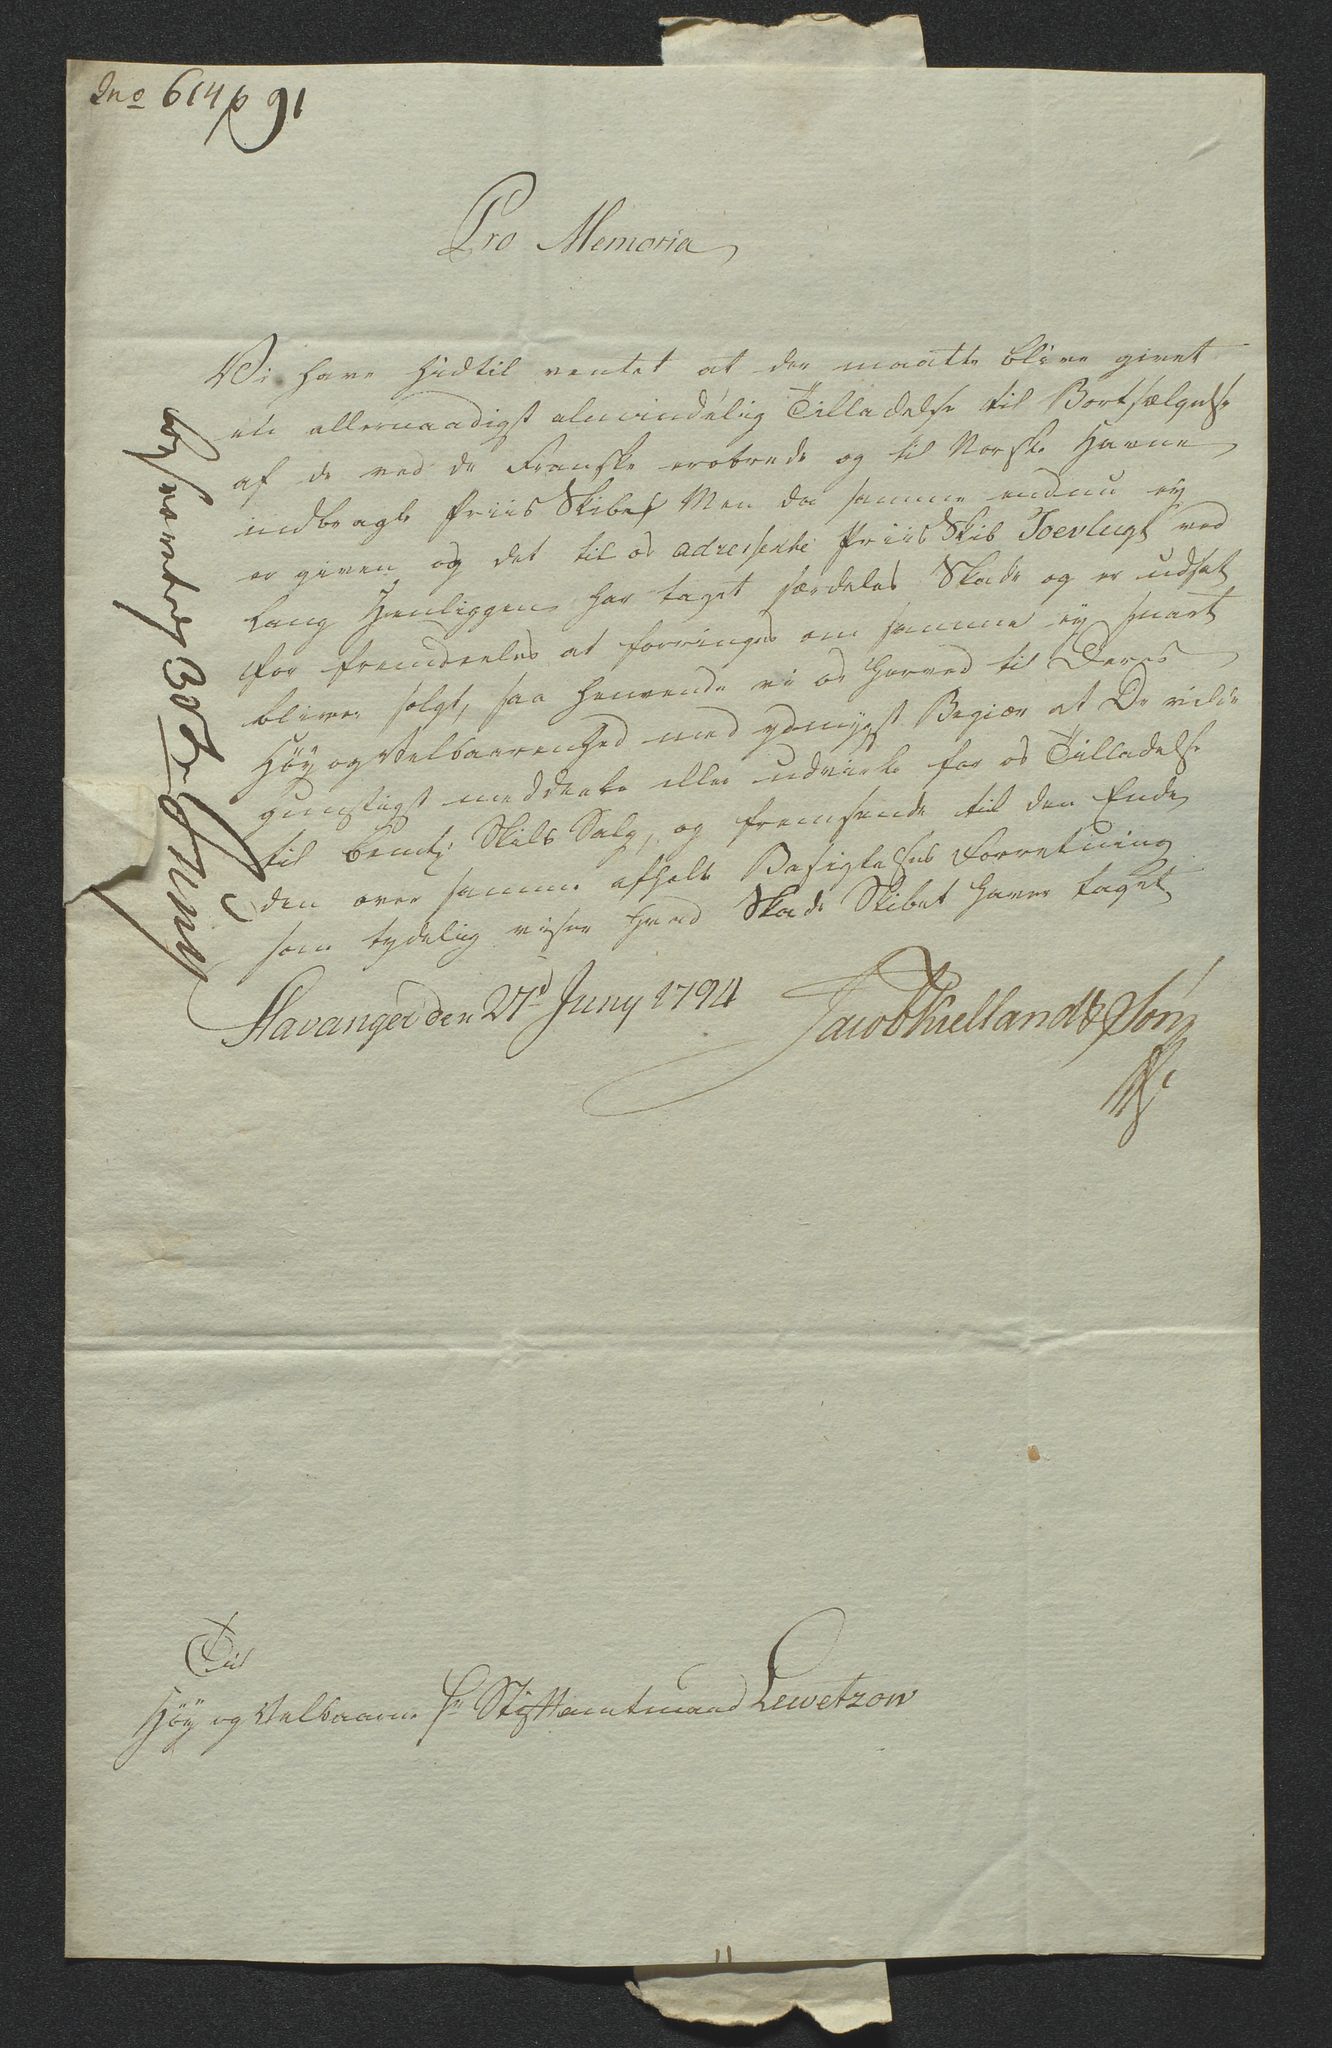 Jno 614 p 91
Pro Memoria
Vi have hidtil ventet at der maatte blive givet
een allernaadigst almindelig Tilladelse til Bortsælgelse
af de ved de Franske erobrede og til Norske Havne
indbragte Priis Skibe, Men da samme endnu ey
er given og det til os adresserte Priis Skib Toevlugt ved
lang Henliggen har taget særdeles Skade og er udsat
for fremdeeles at forringes om samme ey snart
bliver solgt, saa henvende vi os herved til Deres
Høy og Velbaarenhed med ydmygst Begiær at De vilde
gunstigst meddeele eller udvirke for os Tilladelse
til bemte Skibs Salg, og fremsende til den Ende
den over samme afholte Besigtelses Forretning
som tydelig viser hvad Skade Skibet haver taget
Stavanger den 27d Juny 1794
Jacob Kielland & Søn
Til
Høy og Velbaarne Hr Stiftamtmand Lewetzow
besvaret 30 Juny